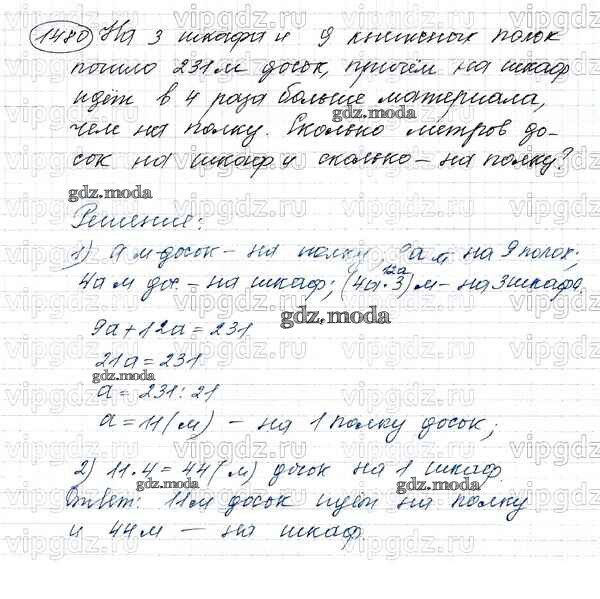 1480 На 3 шкафа и 9 книжных полок
пошло 231 м досок, причём на шкаф
идёт в 4 раза больше материала,
чем на полку. Сколько метров до-
сок на шкаф и сколько – на полку?
gdz.moda
Решение:
1) а м досок – на полку, 9а м на 9 полок;
12а
4а м дос. – на шкаф; (4а·3) м – на 3 шкафа.
9а + 12а = 231
gdz.moda
21а = 231
gdz.moda
а = 231 : 21
а = 11 (м) – на 1 полку досок;
2) 11·4 = 44 (м) досок на 1 шкаф.
Ответ: 11 м досок идёт на полку
gdz.moda
и 44 м – на шкаф.
vipgdz.ru